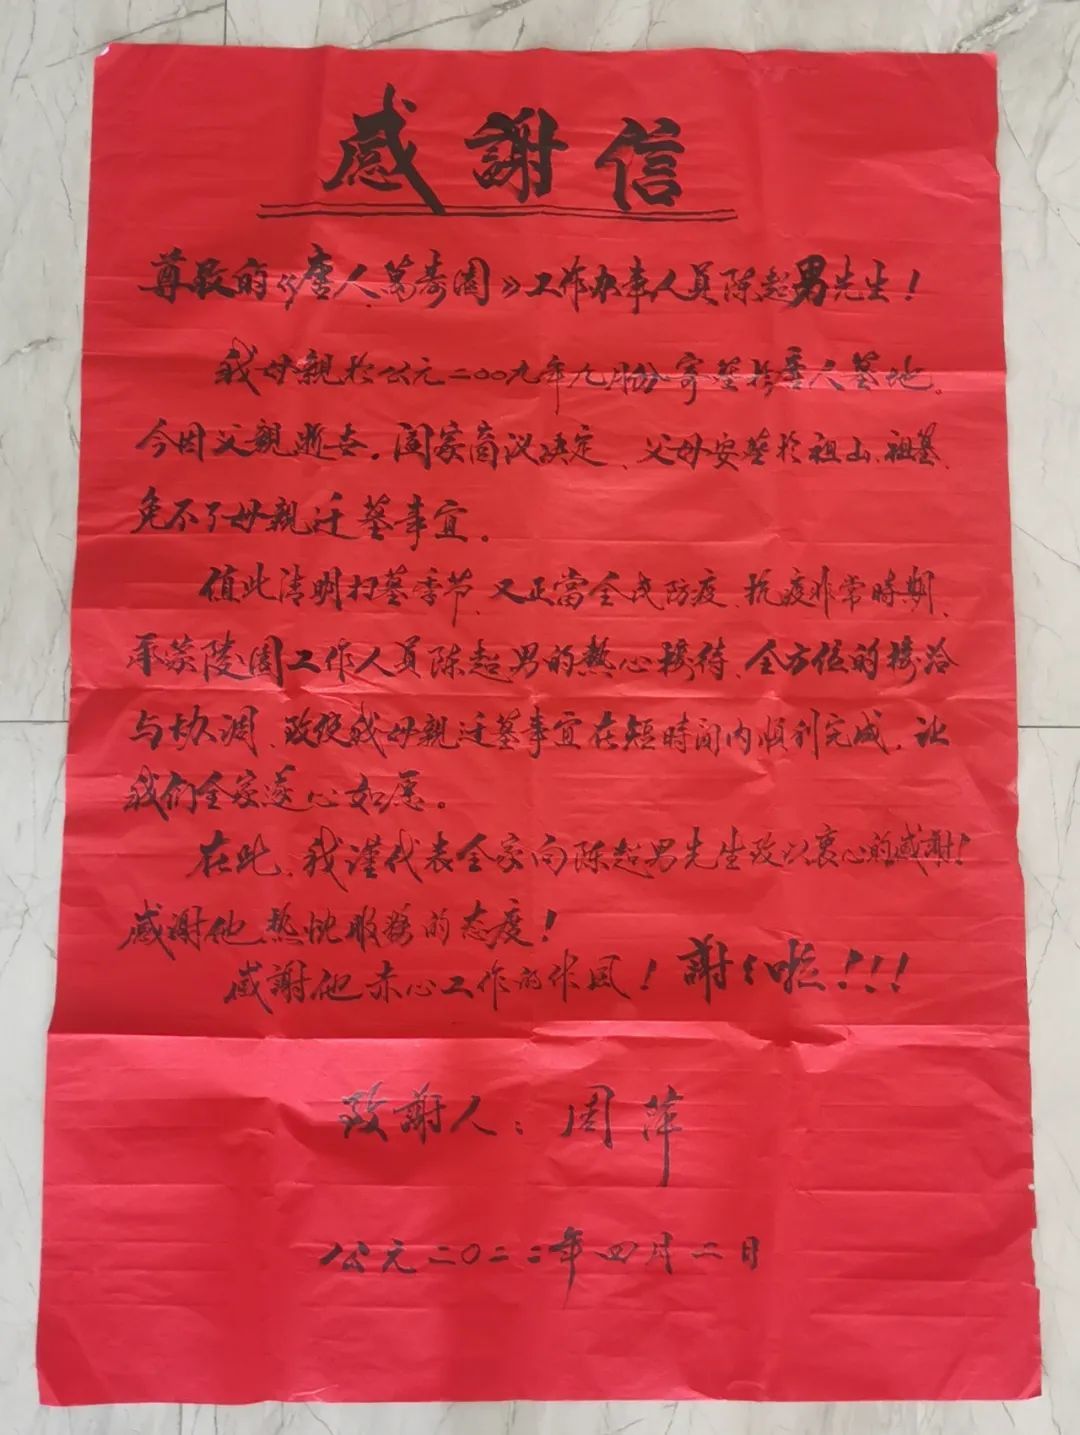 感謝信
尊敬的《唐人萬壽園》工作办事人員陈超男先生！
我母親於公元二〇〇九年九月份寄墓於唐人墓地。
今因父親逝去，阖家商议决定、父母安墓於祖山、祖墓、
免不了母親迁墓事宜。
值此清明扫墓季节、又正當全民防疫、抗疫非常時期、
承蒙陵園工作人員陈超男的热心接待、全方位的接洽
与协调、致使我母親迁墓事宜在短時间内順利完成，让
我们全家遂心如愿。
在此、我谨代表全家向陈超男先生致以衷心的感謝！
感謝他热忱服務的态度！
感謝他赤心工作的作風！謝謝啦！！！
致謝人：周萍
公元二〇二二年四月二日